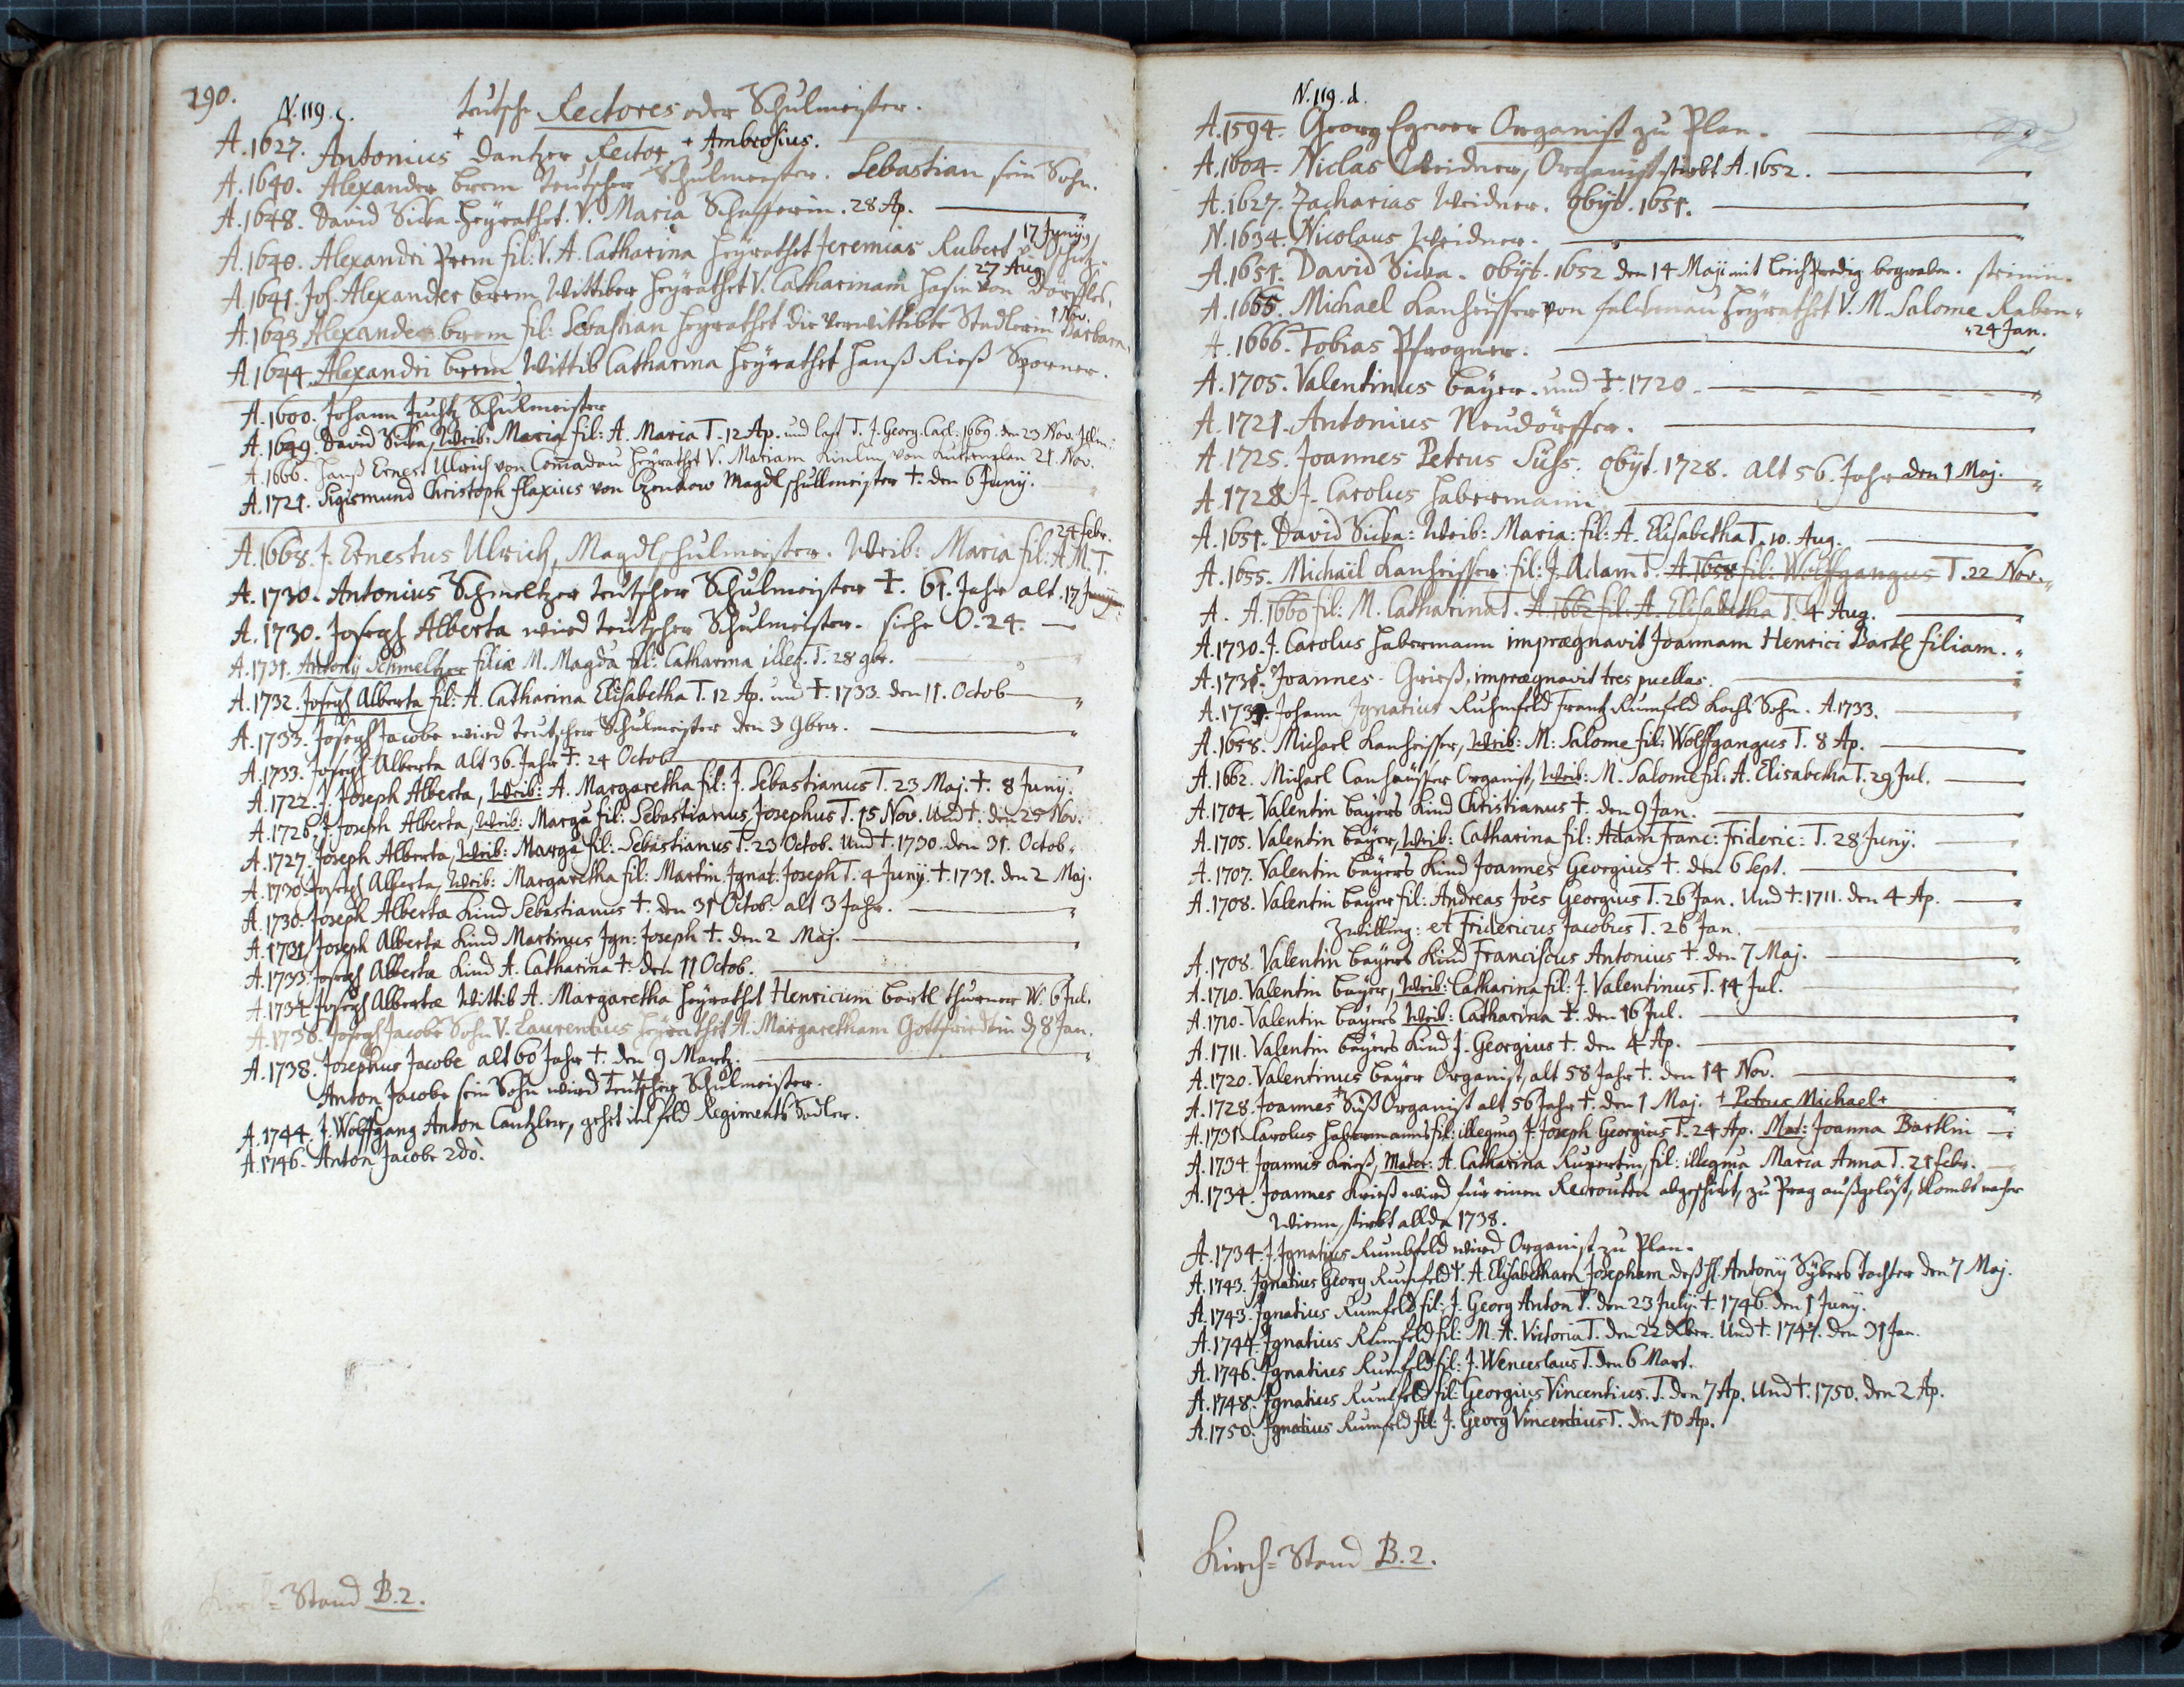 190.
N. 119. c.
Teutsche Rectores oder Schulmeister.
A. 1627. Antonius + Dantzer Rector. + Ambrosius.
A. 1640. Alexander Brem Teutscher Schulmeister. Sebastian sein Sohn.
A. 1648. David Sicka heÿrathet. V. Maria Schafferin. 28 Ap.
17 Junÿ.
A. 1640. Alexandri Prem fil: V. A. Catharina heÿrathet Jeremias Rubert
27 Aug.
A. 1641. Joh. Alexander brem Wittiber heÿrathet V. Catharinam Hasin von Dörfles.
1 Nov.
A. 1643 Alexander brem fil: Sebastian heÿrathet die verwittibte Stadlerin Barbara.
A. 1644. Alexandri brem Wittib Catharina heÿrathet Hanß Rieß Sporner.
A. 1600. Johann Juchtz Schulmeister
A. 1649. David Sicka, Weib: Maria fil: A. Maria T. 12 Ap. und lest T. J. Georg. Carl: 1669. den 23 Nov.
A. 1666. Hanß Ernest Ulrich von Comadau heÿrathet V. Mariam Kinlin von Kuttenplan 21. Nov.
A. 1721. Sigismund Christoph Flaxius von Magdlschullmeister †. den 6 Junÿ.
24 Febr.
A. 1668. J. Ernestus Ulrich, Magdlschulmeister. Weib: Maria fil: A. M. T.
A. 1730. Antonius Schmeltzer Teutscher Schulmeister †. 61. Jahr alt. 17 Junÿ.
A. 1730. Joseph Alberta wird teutscher Schulmeister. siehe O. 24.
A. 1731. Antonÿ Schmeltzer filiæ M. Magda fil: Catharina illeg. T. 28 9br.
A. 1732. Joseph Alberta fil: A. Catharina Elisabetha T. 12 Ap. und †. 1733. den 11. Octob
A. 1733. Joseph Jacobe wird teutscher Schulmeister den 3 9ber.
A. 1733. Joseph Alberta alt 36. Jahr †. 24 Octob
A. 1722. J. Joseph Alberta, Weib: A. Margaretha fil: J. Sebastianus T. 23 Maj. †. 8 Junÿ.
A. 1726. J. Joseph Alberta, Weib: Marga fil: Sebastianus, Josephus T. 15 Nov. und †. den 25 Nov.
A. 1727. Joseph Alberta, Weib: Marga fil: Sebastianus T. 23 Octob. und †. 1730. den 31. Octob.
A. 1730. Joseph Alberta, Weib: Margaretha fil: Martin. Ignat: Joseph T. 4 Junÿ. †. 1731. den 2 Maj.
A. 1730. Joseph Alberta Kind Sebastianus †. den 31 Octob: alt 3 Jahr.
A. 1731. Joseph Alberta Kind Martinus Ign: Joseph †. den 2 Maj.
A. 1733. Joseph Alberta Kind A. Catharina †. den 11 Octob.
A. 1734. Joseph Albertæ Wittib A. Margaretha heÿrathet Henricum Bartl thurner W. 6 Jul.
A. 1738. Joseph Jacobe Sohn V. Laurentius heÿrathet A. Margaretham Gottfriedtin d. 8 Jan.
A. 1738. Josephus Jacobe alt 60 Jahr †. den 9 Martz.
Anton Jacobe sein Sohn wird Teutscher Schulmeister.
A. 1744. J. Wolffgang Anton Cantzler, gehet ins feld Regiments Sadler.
A. 1746. Anton Jacobe 2dò.
Kirch= Stand B. 2.
N. 119. d.
A. 1594. Georg Egerer Organist zu Plan.
A. 1604. Niclas Weidner, Organist stirbt A. 1652.
A. 1627. Zacharias Weidner. obÿt. 1651.
N. 1634. Nicolaus Weidner.
A. 1651. David Sicka. obÿt. 1652 den 14 Maji mit leichpredig begraben.
A. 1665. Michael Kanheisser von Falckenau heÿrathet V. M. Salome Raben=
24 Jan.
A. 1666. Tobias Pfrogner.
A. 1705. Valentinus baÿer. und †. 1720
A. 1721. Antonius Neudörffer.
A. 1725. Joannes Petrus Süss. obÿt. 1728. alt 56. Jahr den 1 Maj.
A. 1728 J. Carolus Habermann
A. 1651. David Sicka: Weib: Maria: fil: A. Elisabetha T. 10. Aug.
A. 1655. Michael Kanheisser: fil: J. Adam T. A. 1658 fil: Wolffgangus T. 22 Nov.
A. A. 1660 fil: M. Catharina T. A. 1662 fil: A. Elisabetha T. 4 Aug.
A. 1730. J. Carolus Habermann imprægnavit Joannam Henrici Bartl filiam.
A. 1731. Joannes Grieß, imprægnavit tres puellas.
A. 1731. Johann Ignatius Ruhmfeld Frantz Rumfeld Kochs Sohn. A. 1733.
A. 1658. Michael Kanheisser, Weib: M: Salome fil: Wolffgangus T. 8 Ap.
A. 1662. Michael Canhäusser Organist, Weib: M. Salome fil: A. Elisabetha T. 29 Jul.
A. 1704. Valentin baÿers Kind Christianus †. den 9 Jan.
A. 1705. Valentin baÿer, Weib: Catharina fil: Adam Franc: Frideric: T. 28 Junÿ.
A. 1707. Valentin baÿers Kind Joannes Georgius †. den 6 Sept.
A. 1708. Valentin baÿer fil: Andreas Joes Georgius T. 26 Jan. und †. 1711. den 4 Ap.
Zwilling: et Fridericus Jacobus T. 26 Jan.
A. 1708. Valentin baÿers Kind Franciscus Antonius †. den 7 Maj.
A. 1710. Valentin baÿer, Weib: Catharina fil: J. Valentinus T. 14 Jul.
A. 1710. Valentin baÿers Weib: Catharina †. den 16 Jul.
A. 1711. Valentin baÿers Kind J. Georgius †. den 4 Ap.
A. 1720. Valentinus baÿer Organist, alt 58 Jahr †. den 14 Nov.
A. 1728. Joannes + Süß Organist alt 56 Jahr †. den 1 Maj. + Petrus Michael +
A. 1731. Carolus Habermanns fil: illegmg J. Joseph Georgius T. 24 Ap. Mat: Joanna Bartlin
A. 1734. Joannis Krieß, Mater: A. Catharina Rupertin, fil: illegma Maria Anna T. 21 Febr.
A. 1734. Joannes Krieß wird für einen Recrouten abgeschickt, zu Prag außgelöst, kombt nacher
Wienn, stirbt allda 1738.
A. 1734. J. Ignatius Rumbfeld wird Organist zu Plan.
A. 1743. Ignatius Georg Rumfeld A. Elisabetham Josepham deß H. Antonÿ Sÿbers tochter den 7 Maj.
A. 1743. Ignatius Rumfeld fil: J. Georg Anton T. den 23 Julÿ †. 1746. den 1 Junÿ.
A. 1744. Ignatius Rumfeld fil: M. A. Victoria T. den 22 Xber. und †. 1747. den 31 Jan.
A. 1746. Ignatius Rumfeld fil: J. Wenceslaus T. den 6 Mart.
A. 1748. Ignatius Rumfeld fil: Georgius Vincentius. T. den 7 Ap. und †. 1750. den 2 Ap.
A. 1750. Ignatius Rumfeld fil: J. Georg Vincentius T. den 10 Ap.
Kirch= Stand B. 2.